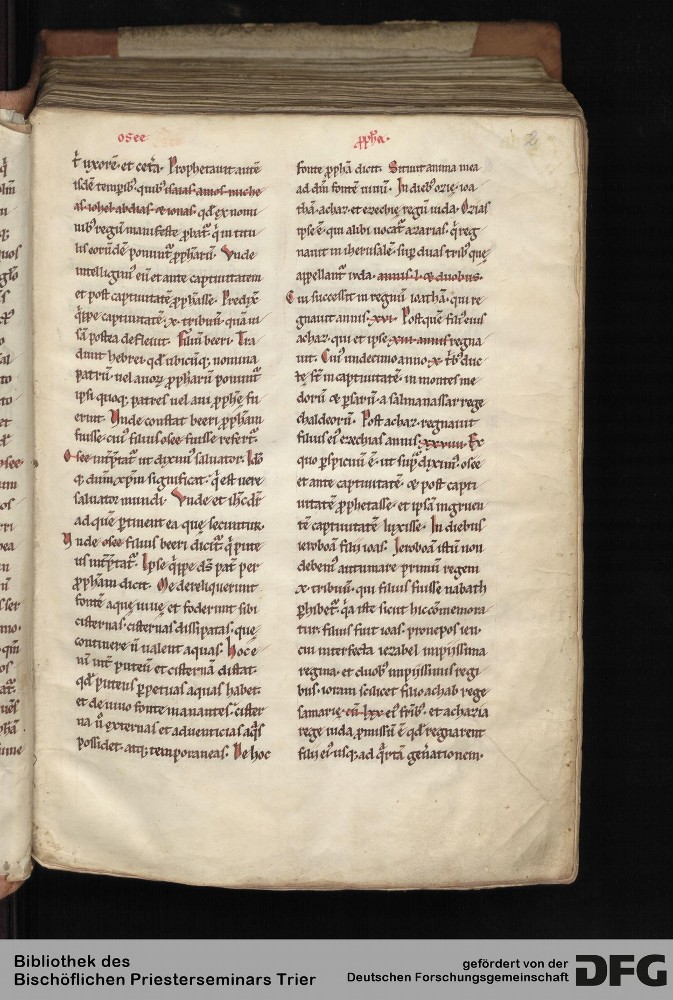 osee
ꝓph̄a.
t̄ uxorē. et cet̄a. Prophetauit autē
isdē temporibꝰ. quibꝰ isaias. amos. miche
as. iohel. abdias. & ionas. qđ ex nomi
nibꝰ regū manifeste ꝓbat᷑. q̇ in titu
lis eorūdē ponunt᷑ ꝓpharū. Vnde
intelligimꝰ eū et ante captiuitatem
et post captiuitatē ꝓphasse. Predix̄
q̇ppe captiuitatē. x. tribuū. quā ui
sā postea defleuit. Filiū beeri. Tra
dunt hebrei. qđ ubicūq; nomina
patrū. uel auoꝝ ꝓpharū ponunt᷑
ipsi quoq; patres uel aui ꝓphę fu
erunt. Vnde constat beeri ꝓpham
fuisse. cuiꝰ filius osee fuisse refert᷑.
Osee int̄p̄tat᷑ ut diximꝰ saluator. Ido
q; dn̄m xp̄m significat. q̇ est uere
saluator mundi. Vnde et ih̄c dr̄
ad quē ꝑtinent ea quę secuntur.
Vnde osee filius beeri dicit᷑. q̇ pute
us int̄p̄tat᷑. Ipse q̇ppe ds̄ pat᷑ per
ꝓpham dicit. Me dereliquerunt
fontē aquę uiuę. et foderunt sibi
cisternas. cisternas dissipatas. quę
continere n̄ ualent aquas. Hoc e
ni int̄ puteū et cisternā distat.
qđ puteus ꝑpetuas aquas habet.
et de uiuo fonte manantes. cister
na ů externas et aduenticias aq̇s
possidet. atq; temporaneas. De hoc
fonte ꝓpha dicit. Sitiuit anima mea
ad dm̄ fontē uiuū. In diebꝰ ozię. ioa
thā. achaz. et ezechię regū iuda. Ozias
ipse ē. qui alibi uocat᷑ azarias. q̇ reg
nauit in iherusalē. sup duas tribꝰ quę
appellant᷑ iuda. annis. l. & duobus.
Cui successit in regnū ioathā. qui re
gnauit annis. xvi. Post quē filiꝰ eius
achaz. qui et ipse xvi. annis regna
uit. Cuiꝰ undecimo anno. x. t̄bꝰ duc
tę st̄ in captiuitatē. in montes me
dorū & persarū. a salmanassar rege
chaldeorū. Post achaz. regnauit
filius eiꝰ ezechias annis. xxviiii. Ex
quo ꝑspicuū ē. ut sup̄ diximꝰ. osee
et ante captiuitatē & post capti
uitatē ꝓphetasse. et ipsā ingruen
tē captiuitatē luxisse. In diebus
ieroboā filij ioas. Ieroboā istū non
debemꝰ autumare primū regem
x. tribuū. qui filius fuisse nabath
ꝑhibet᷑. q̇a iste sicut hic cōmemora
tur. filius fuit ioas. pronepos ieu.
cui interfecta iezabel impijssima
regina. et duobꝰ impijssimis regi
bus. ioram scilicet filio achab rege
samarię. cū lxx. eiꝰ fr̄ibꝰ. et achazia
rege iuda. ꝑmissū ē qđ regnarent
filij eiꝰ usq; ad q̇rtā gen̄ationem.
Bibliothek des
Bischöflichen Priesterseminars Trier
gefördert von der
Deutschen Forschungsgemeinschaft
DFG